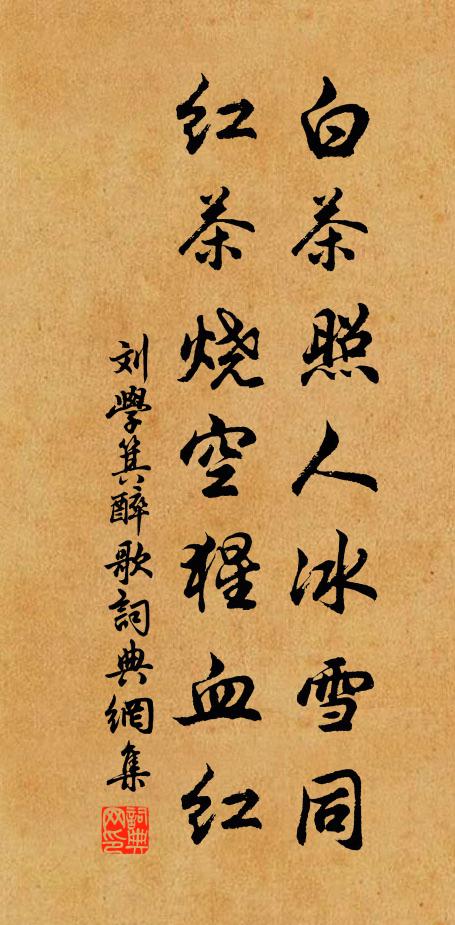 白茶照人冰雪同
红茶烧空猩血红
刘學箕醉歌詞典網集
詞典网印